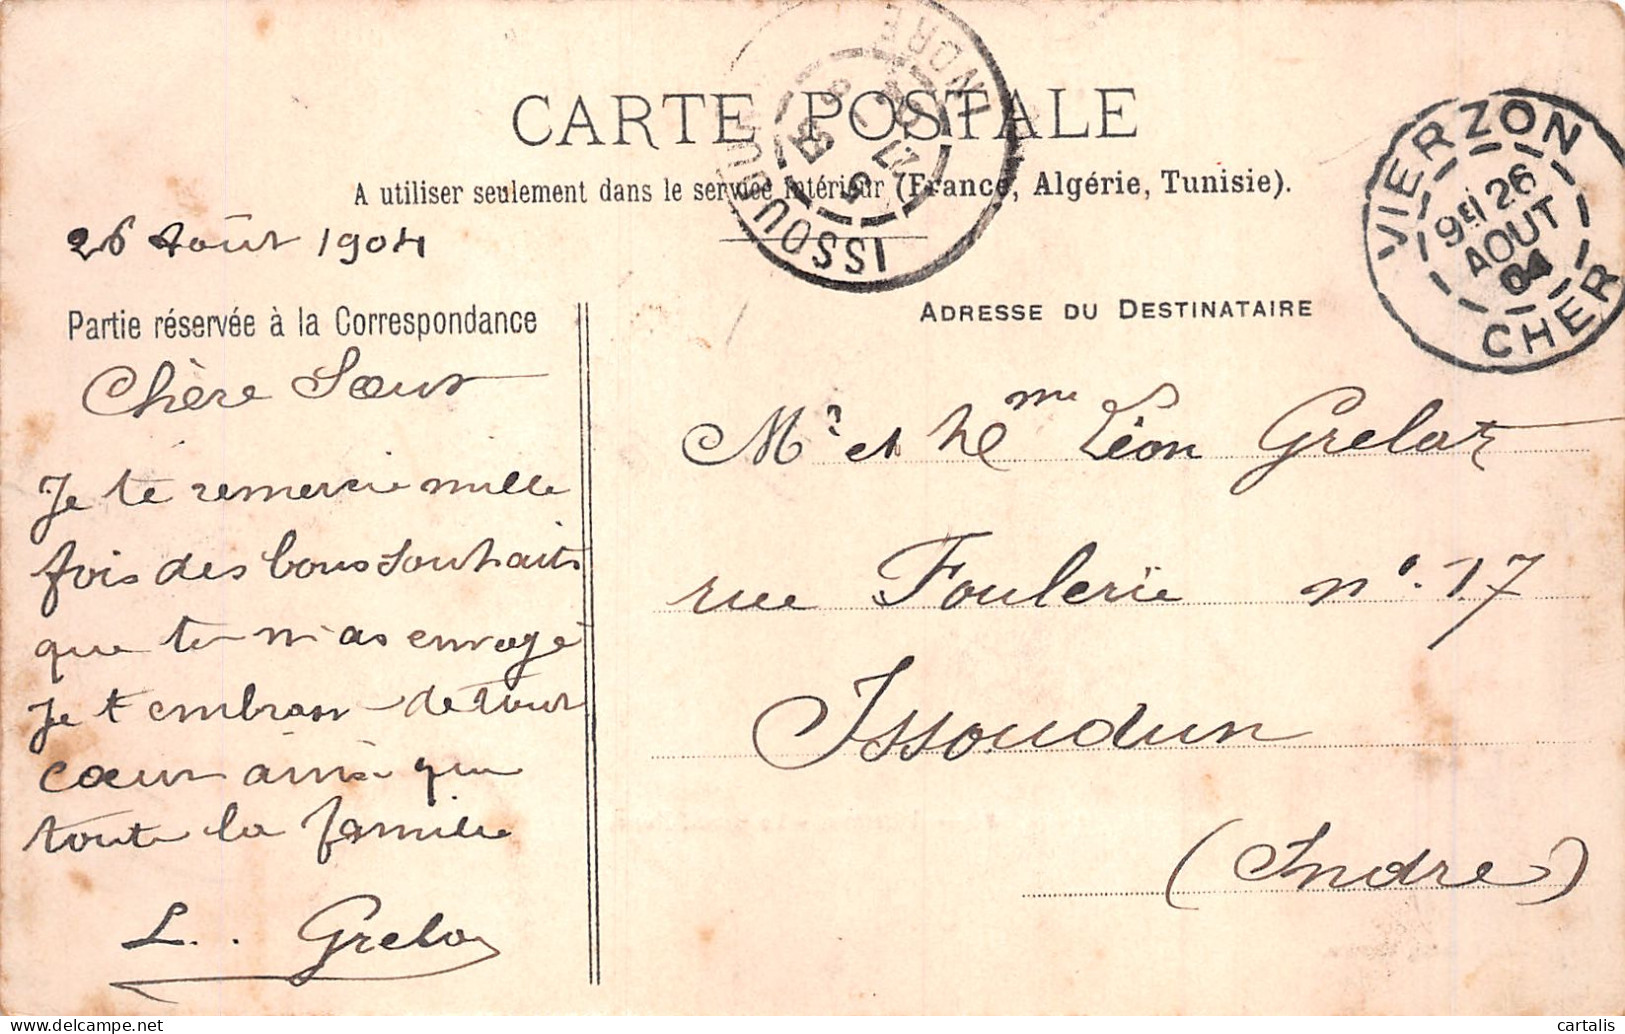 CARTE POSTALE
A utiliser seulement dans le service intérieur (France, Algérie, Tunisie).
ISSOUDUN
INDRE
27
VIERZON
26
AOUT
04
CHER
26 Août 1904
Partie réservée à la Correspondance
Chère Sœur
Je te remercie mille
fois des bons souhaits
que tu m'as envoyé
Je t'embrasse de tout
cœur ainsi que
toute la famille
L. Grelat
ADRESSE DU DESTINATAIRE
Mr et Mme Léon Grelat
rue Foulerie n°. 17
Issoudun
(Indre)
delcampe.net
cartalis